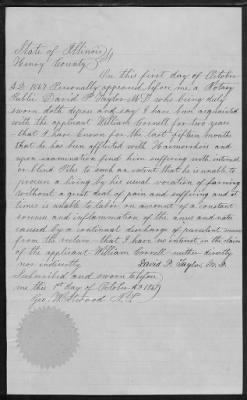 State of Illinois
Henry County
On this first day of October
A.D. 1867 Personally appeared before me a Notary
Public David P. Taylor M.D. who being duly
sworn doth depose and say I have been acquainted
with the applicant William Correll for two years
that I have known for the last fifteen months
that he has been afflicted with Haemorrhoids and
upon examination find him suffering with internal
or blind Piles to such an extent that he is unable to
procure a living by his usual vocation of farming
without a great deal of pain and suffering and at
times is unable to labor on account of a constant
soreness and inflammation of the anus and nates
caused by a continual discharge of purulent mucus
from the rectum that I have no interest in the claim
of the applicant William Correll neither directly
nor indirectly David P. Taylor M.D.
Subscribed and sworn to before
me this 1st day of October AD 1867
Geo. N.P.